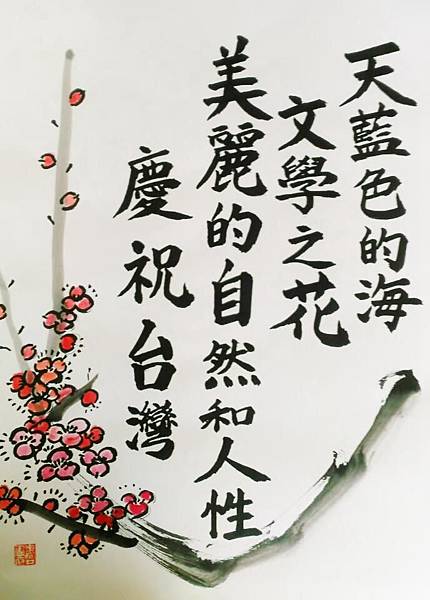 天藍色的海
文學之花
美麗的自然和人性
慶祝台灣